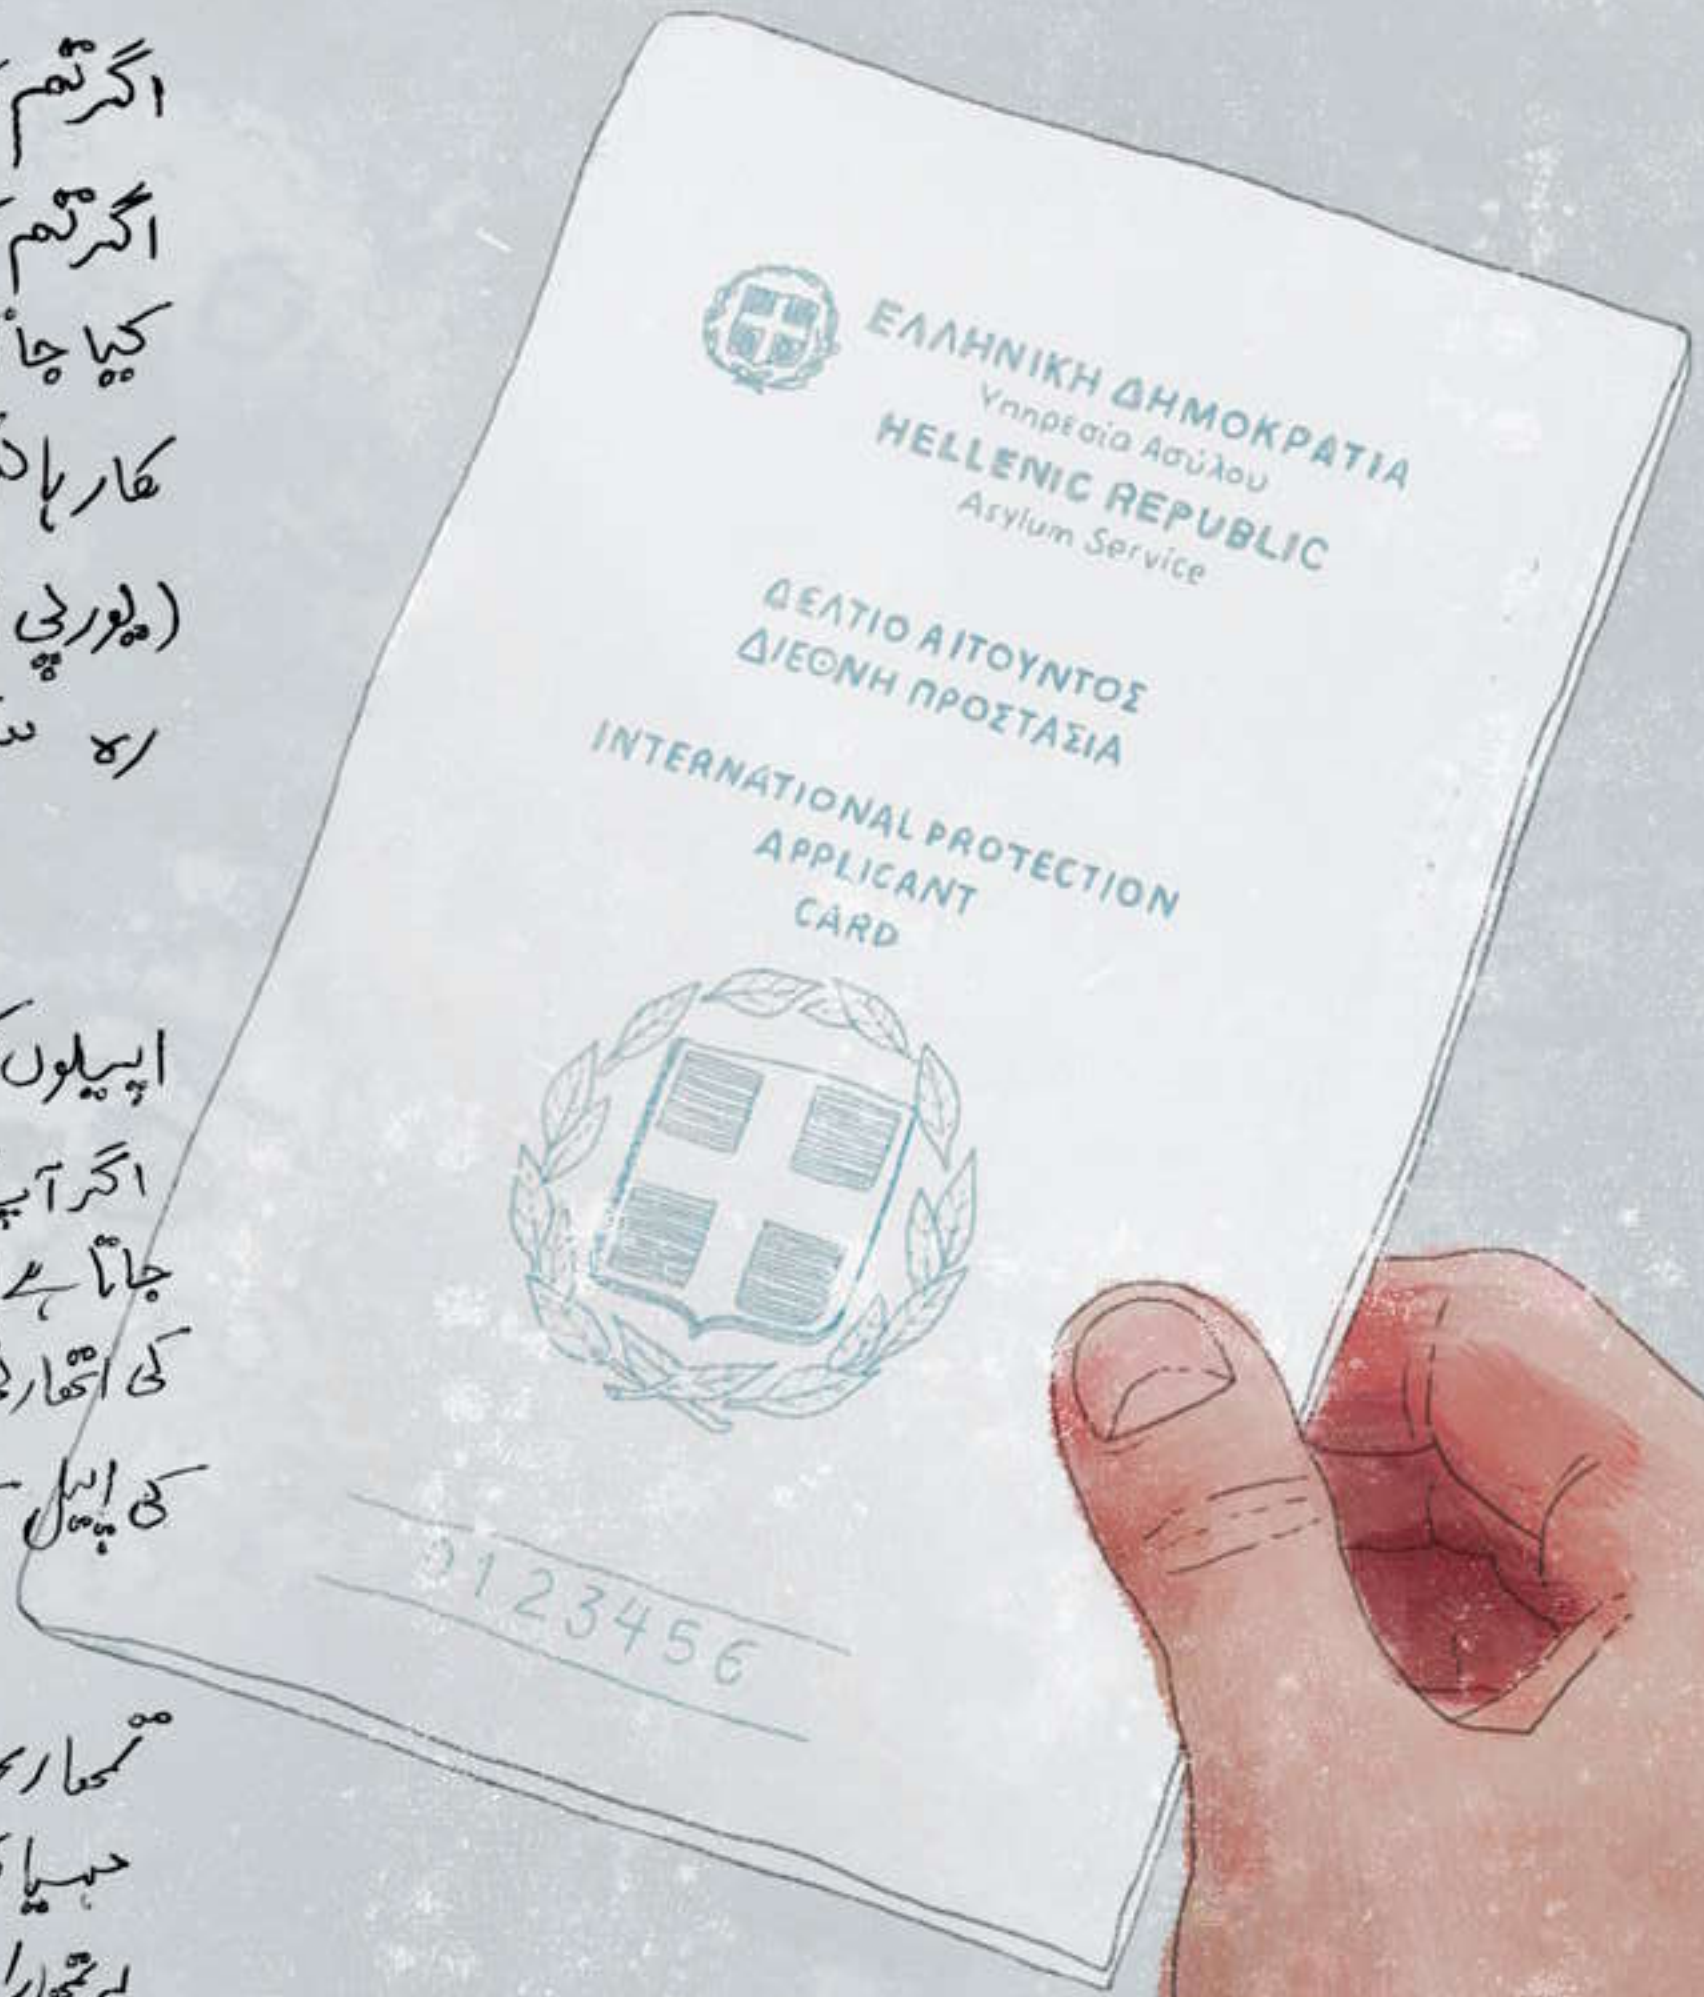 اگر تم
اگر تم
کیا جا
کار یا
(یورپی
رہ
اپیلوں
اگر آپ
جاتا ہے
کی اتھارٹی
کی اپیل
ΕΛΛΗΝΙΚΗ ΔΗΜΟΚΡΑΤΙΑ
Υπηρεσία Ασύλου
HELLENIC REPUBLIC
Asylum Service
ΔΕΛΤΙΟ ΑΙΤΟΥΝΤΟΣ
ΔΙΕΘΝΗ ΠΡΟΣΤΑΣΙΑ
INTERNATIONAL PROTECTION
APPLICANT
CARD
0123456